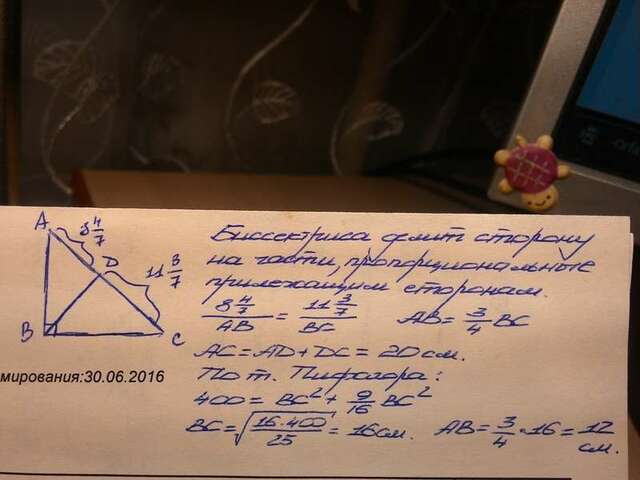 A
8 4/7
D
11 3/7
B
C
Биссектриса делит сторону
на части, пропорциональные
прилежащим сторонам.
8 4/7 / AB = 11 3/7 / BC AB = 3/4 BC
AC = AD + DC = 20 см.
По т. Пифагора:
400 = BC² + 9/16 BC²
BC = √(16·400/25) = 16 см. AB = 3/4 · 16 = 12 см.
мирования:30.06.2016